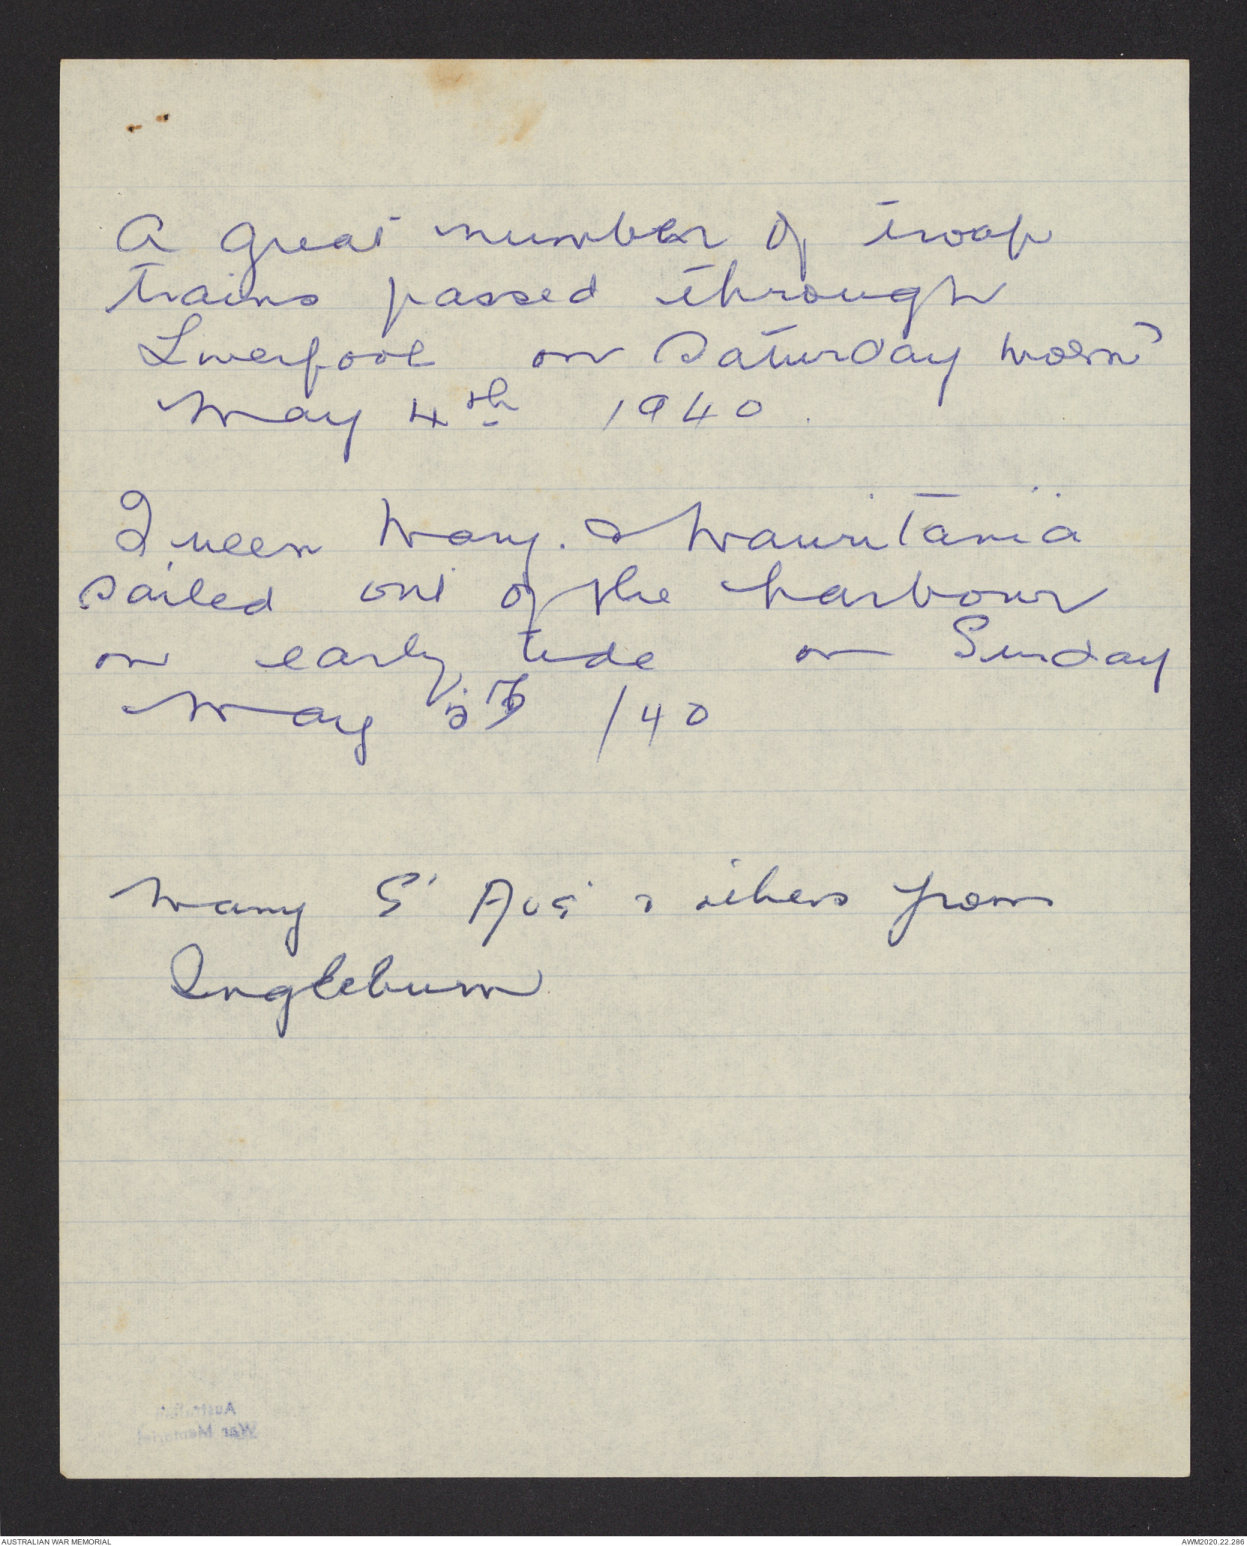 A great number of troop
trains passed through
Liverpool on Saturday morn
May 4th 1940.
Queen Mary. & Mauritania
sailed out of the harbour
on early tide on Sunday
May 5th /40
Many S' & others from
Ingleburn
Australian
War Memorial
AUSTRALIAN WAR MEMORIAL
AWM2020.22.286